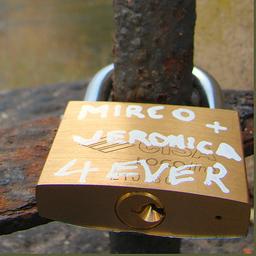 MIRCO +
VERONICA
4 EVER